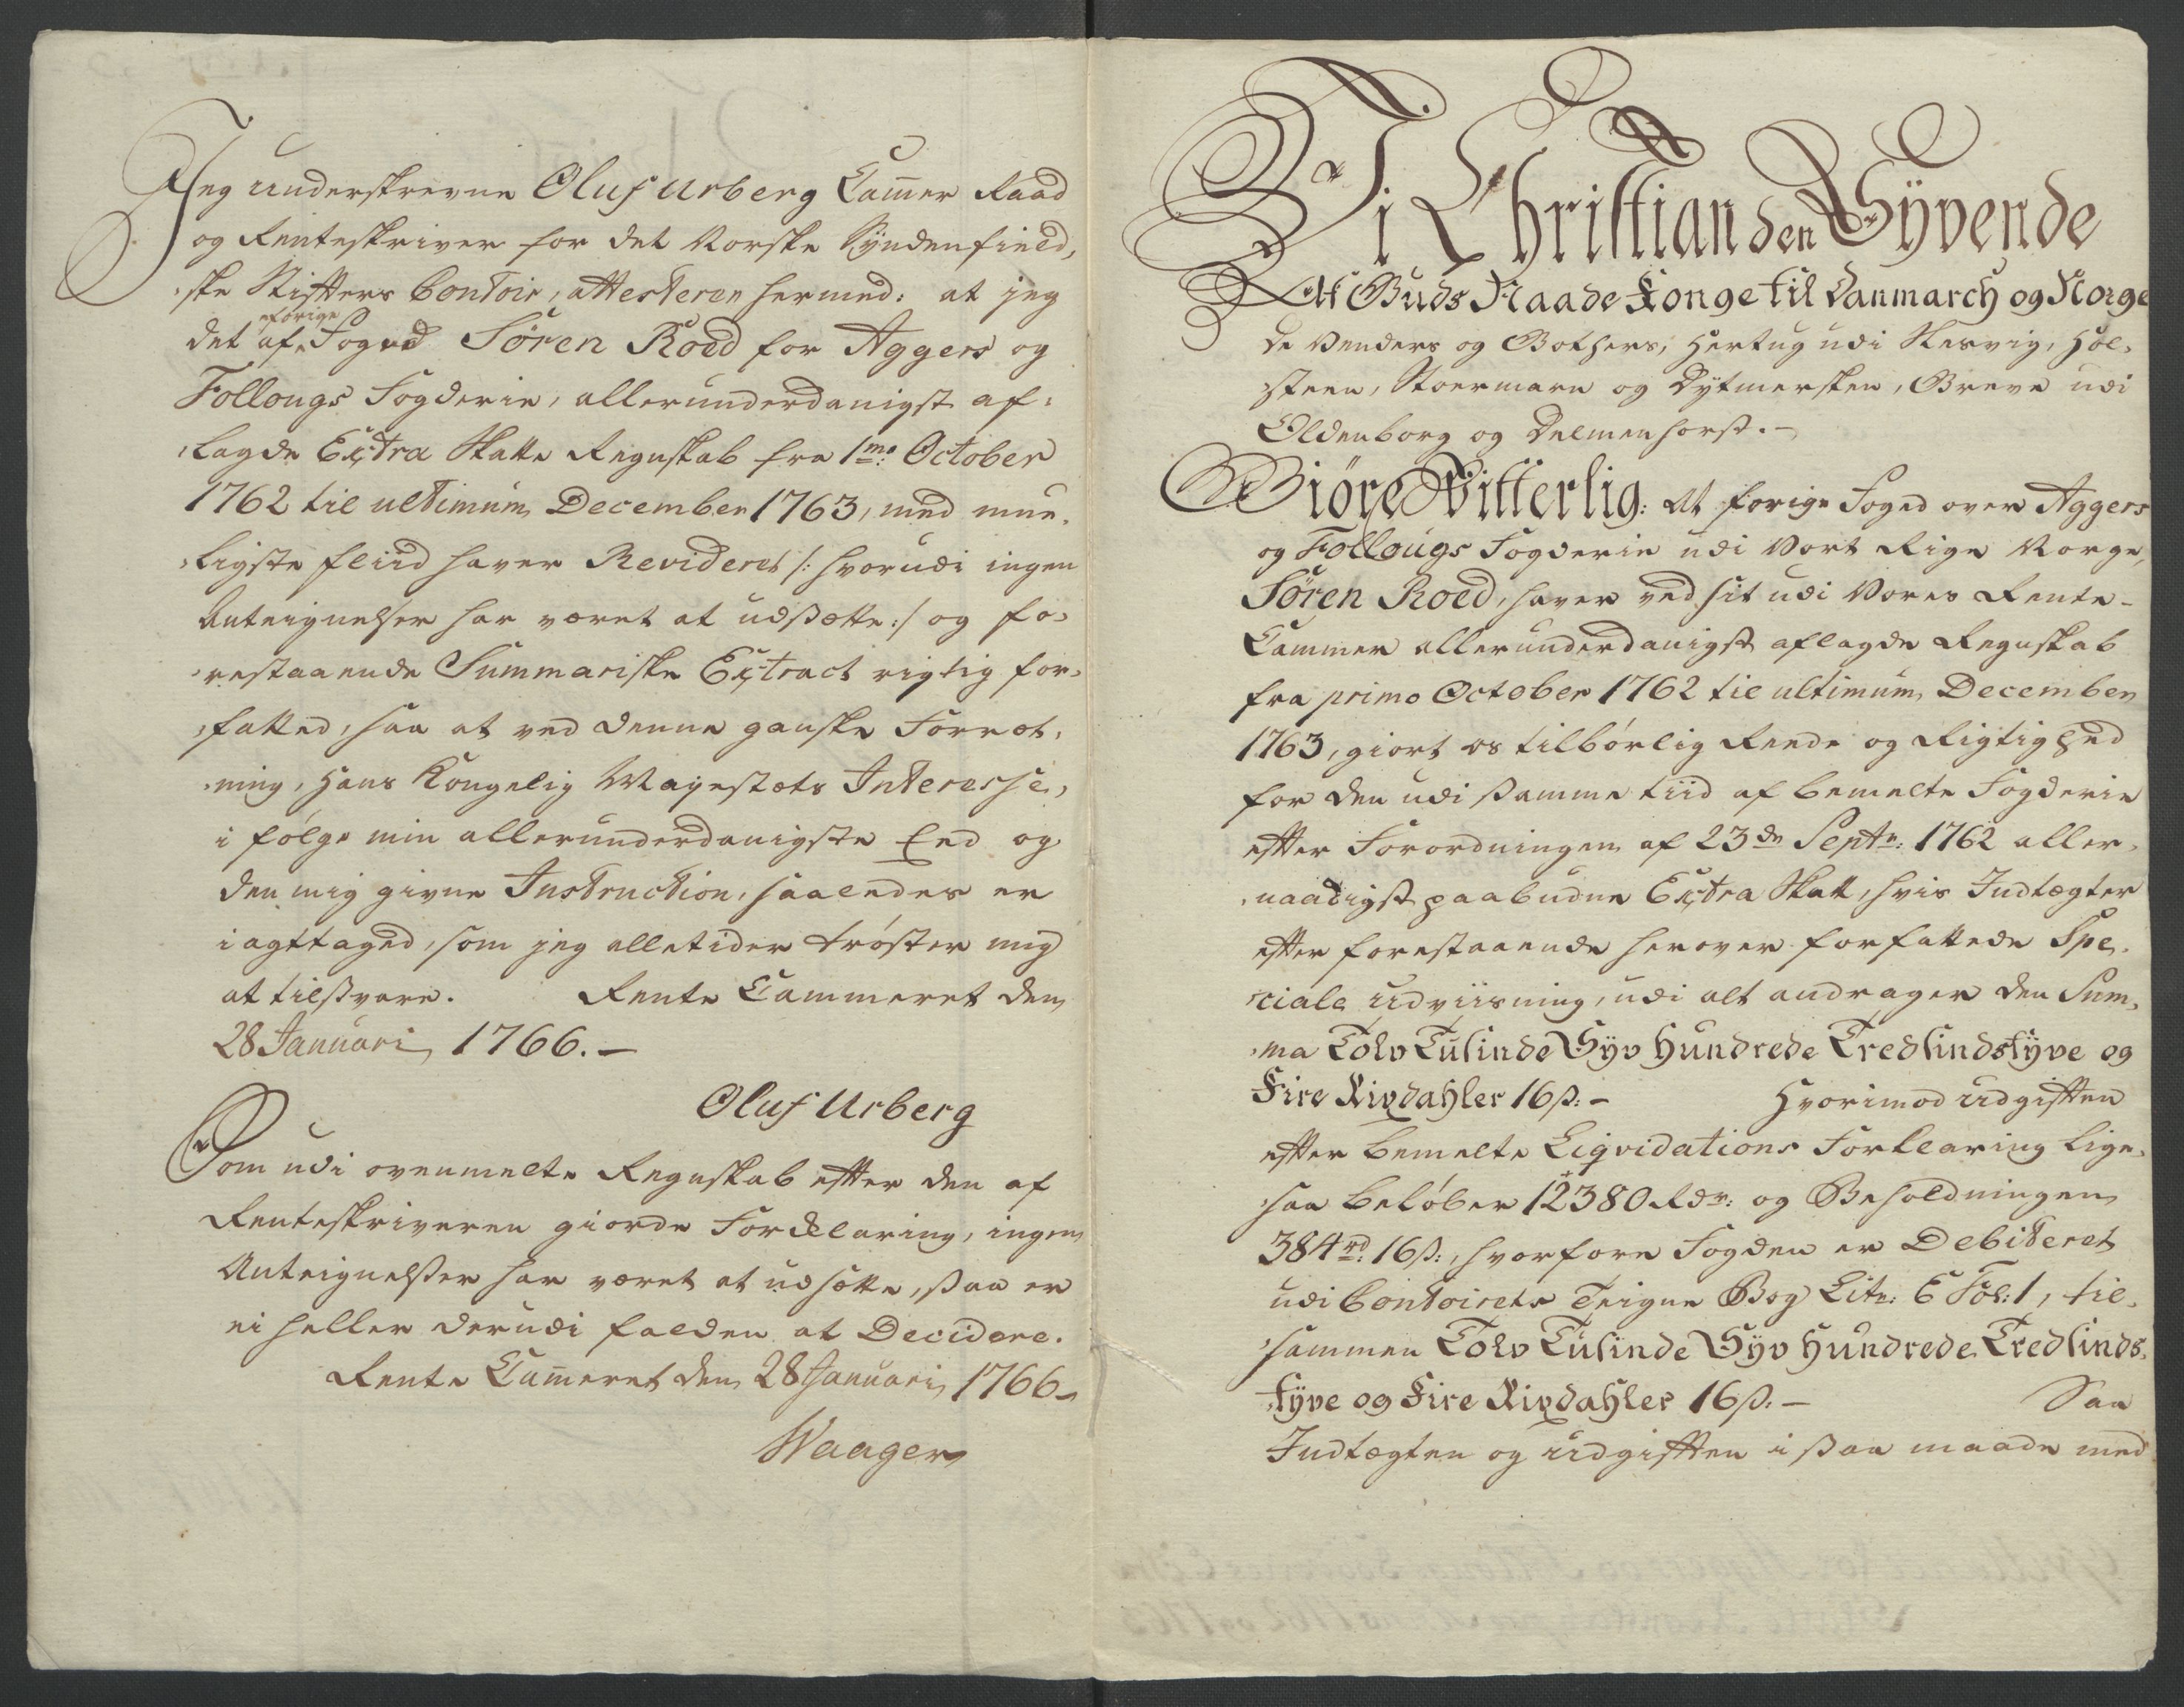 Jeg underskrevne Oluf Urberg Cam̄er Raad
og Renteskriver for det Norske Syndenfield,
,ske Stifters Contoir, attesterer hermed: at jeg
det af forige Foged Sören Roed for Aggers og
Follougs Fogderie, allerunderdanigst af,
,lagde Extra Skatte Regnskab fra 1mo October
1762 til ultimum December 1763, med mue,
,ligste fliid haver Revideret /: hvorudi ingen
Anteignelser har været at udsætte :/ og fo,
,restaaende Summariske Extract rigtig for,
,fatted, saa at ved denne ganske Forret,
,ning, Hans Kongelig Mayestæts Interesse,
i fölge min allerunderdanigste Eed og
den mig givne Instruction, saaledes er
iagttaged, som jeg alletider tröster mig
at tilsvare. Rente Cammeret den
28 Januari 1766.-
Oluf Urberg
Som udi ovenmelte Regnskab efter den af
Renteskriveren giorde Forklaring, ingen
Anteignelser har været at udsætte, saa er
ei heller derudi falden at Decidere.
Rente Cam̄eret den 28 Januari 1766.
Waager
Vi Christian den Syvende
Af Guds Naade Konge til Danmarch og Norge
De Venders og Gothers, Hertug udi Slesvig, Hol,
,steen, Stoermarn og Dytmersken, Greve udi
Oldenborg og Delmenhorst.-
Giöre Vitterlig: At forige Foged over Aggers
og Follougs Fogderie udi Vort Rige Norge,
Sören Roed, haver ved sit udi Vores Rente-
Cammer allerunderdanigst aflagde Regnskab
fra primo October 1762 til ultimum December
1763, giort os tilbörlig Rede og Rigtighed
for den udi samme tiid af bemelte Fogderie
efter Forordningen af 23de Septr: 1762 aller,
,naadigst paabudne Extra Skatt, hvis Indtægter
efter forestaaende herover forfattede Spe,
,ciale Udviisning, udi alt andrager den Sum,
,ma Tolv Tusinde Syv Hundrede Tredsindstyve og
Fire Rixdahler 16 ß:- Hvorimod Udgiften
efter bemelte Liqvidations Forklaring lige,
,saa belöber 12380 Rdr: og Beholdningen
384 rd: 16 ß:, hvorfore Fogden er Debiteret
udi Contoirets Teigne Bog Litr: E Fol: 1, til,
,sammen Tolv Tusinde Syv Hundrede Tredsinds,
,tyve og Fire Rixdahler 16 ß.- Saa
Indtægten og Udgiften i saa maade med